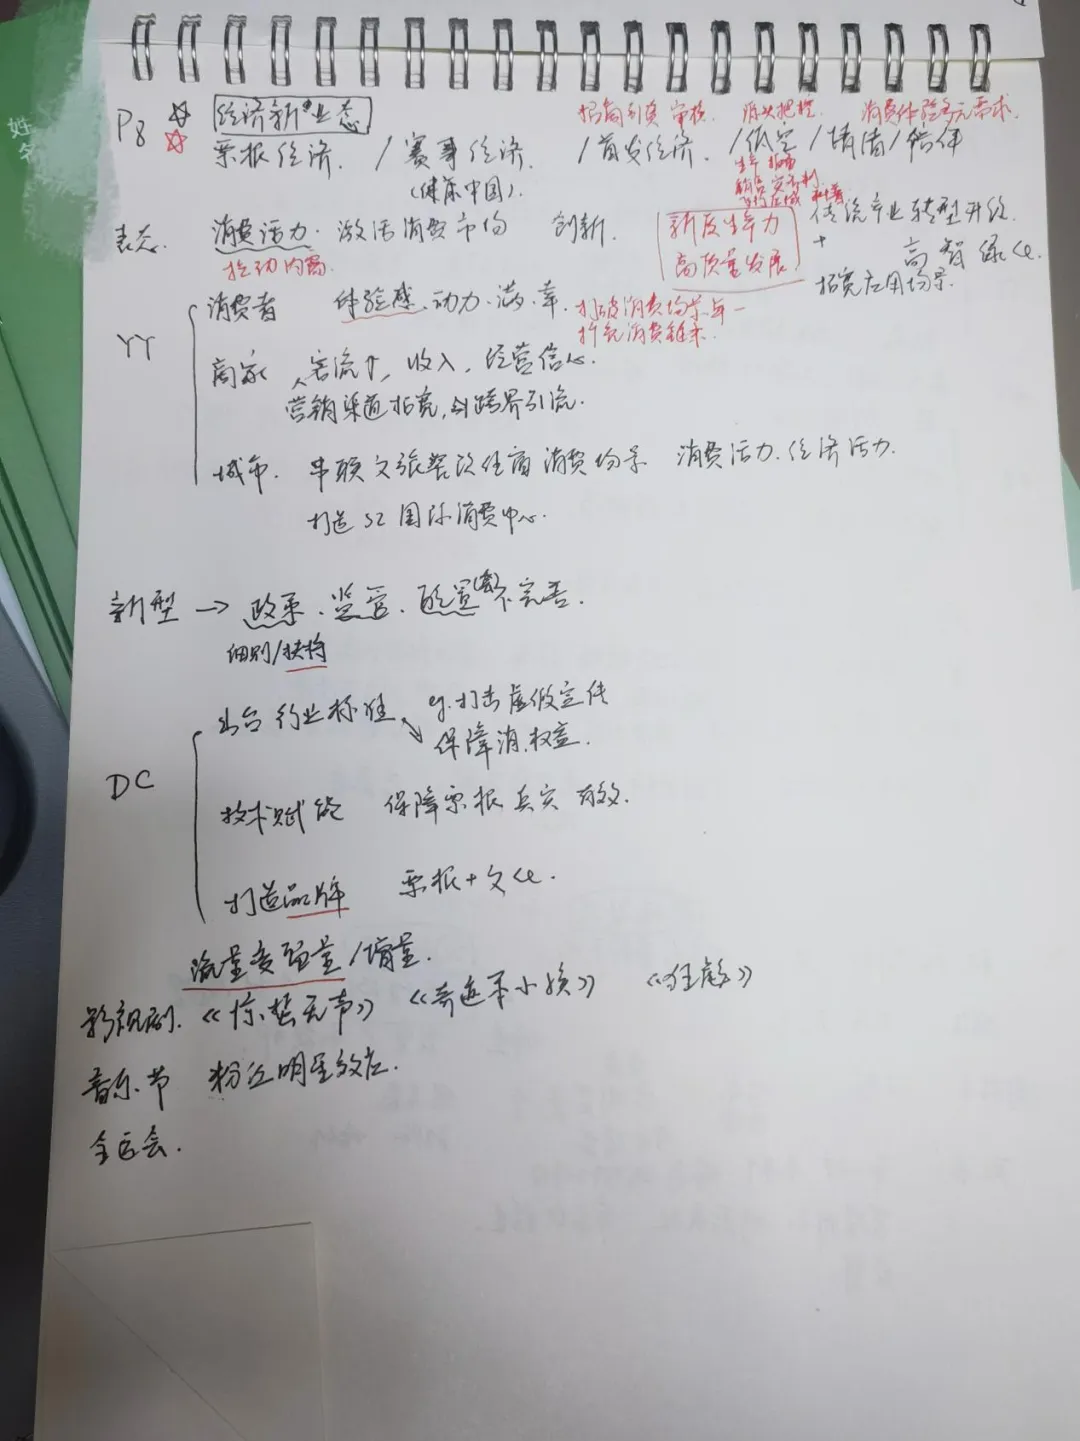 姓名
P8 经济新业态
招商引资 审核 源头把控 消费体验多元需求
票根经济 / 赛事经济 / 首发经济 / 低空 / 情绪 / 陪伴
(健康中国)
生产 制造
表态 消费活力. 激活消费市场 创新. 新质生产力 传统产业转型升级.
拉动内需. 高质量发展 + 高智绿化.
拓宽应用场景.
消费者 体验感.动力.满.幸. 打破消费场景单一
YY 拆分消费链条.
商家 人客流↑, 收入, 经营信心.
营销渠道拓宽, 跨界引流.
城市. 串联文旅餐饮住商消费场景 消费活力.经济活力.
打造SZ国际消费中心.
新型 → 政策.监管.配置不完善.
细则/扶持
出台行业标准 eg.打击虚假宣传
保障消.权益.
DC
技术赋能 保障票根真实有效.
打造品牌 票根+文化.
流量变留量/增量.
影视剧.《惊蛰无声》《奇迹笨小孩》《狂飙》
音乐节 粉丝明星效应.
全运会.